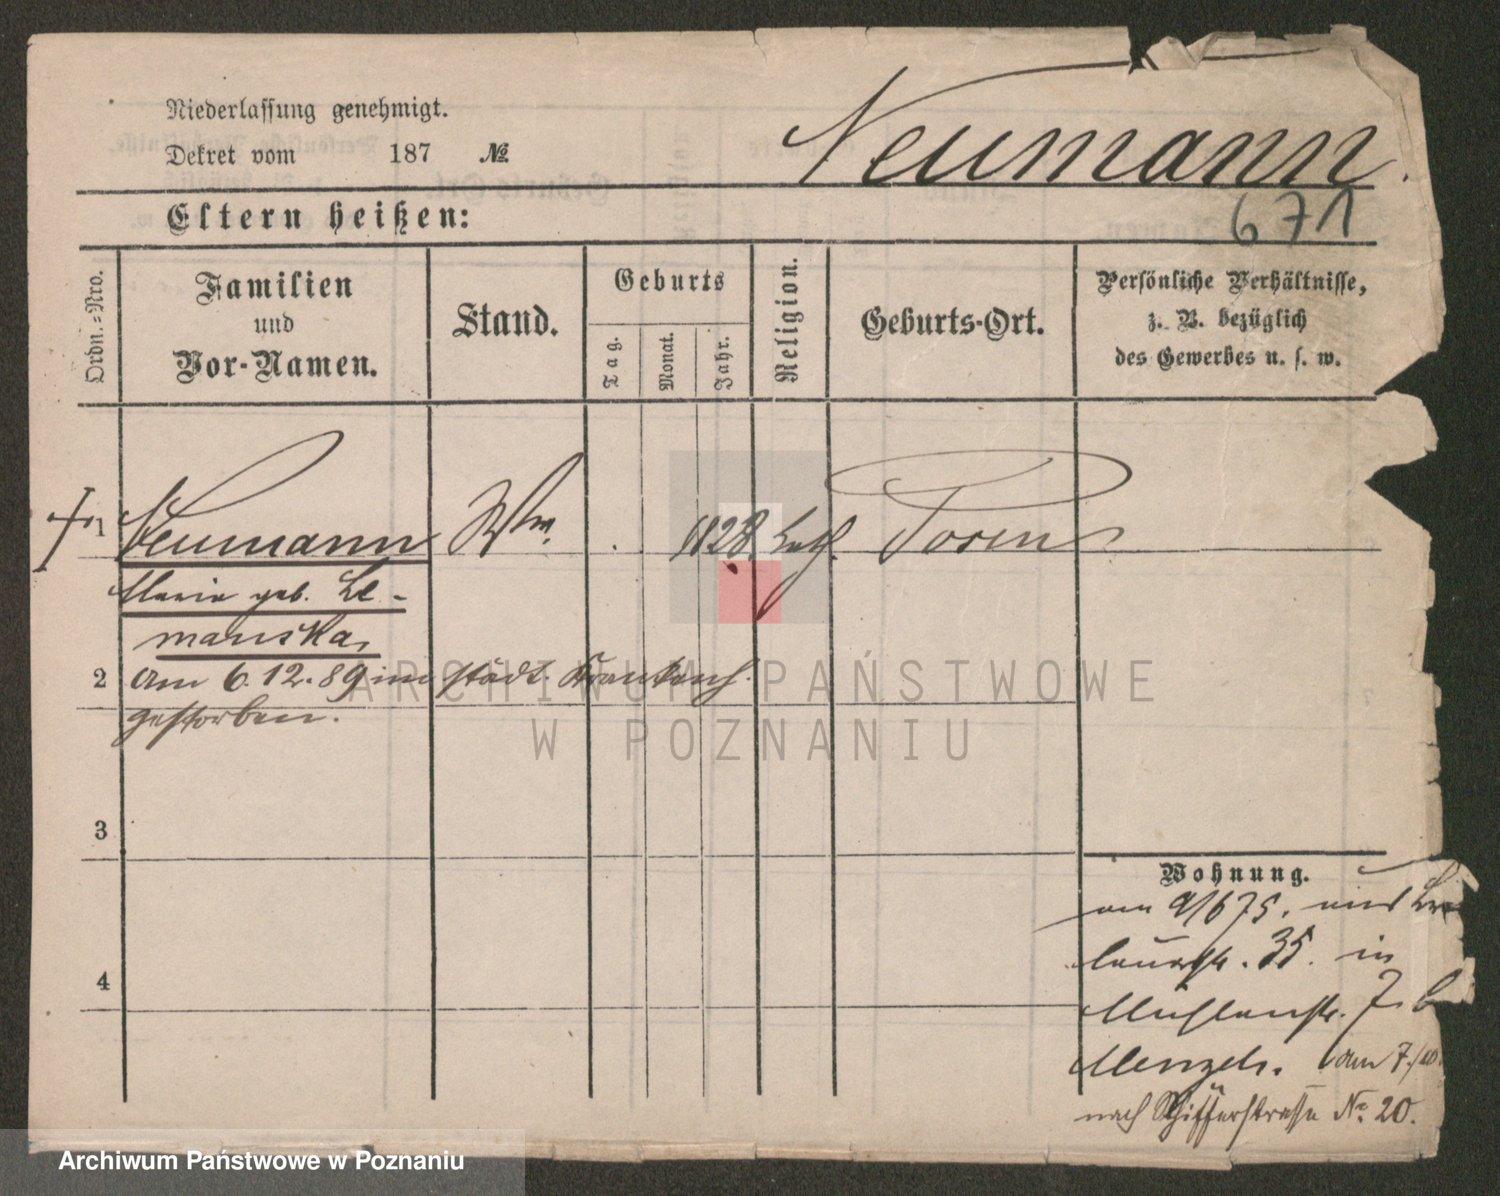 Niederlassung genehmigt.
Dekret vom 187 №
Neumann.
671
Eltern heißen:
Ordn.-Nro.
Familien
und
Vor-Namen.
Stand.
Geburts
Tag.
Monat.
Jahr.
Religion.
Geburts-Ort.
Persönliche Verhältnisse,
z. B. bezüglich
des Gewerbes u. s. w.
1 Neumann Ww. 1828. kath. Posen
Maria geb. Le-
manska,
2 am 6.12.89 im städt. Krankenh.
gestorben.
3
4
Wohnung.
am 9/6 75. aus
35. in
Mühlenstr. 7. b
Menzel. am 7./10.
nach Schifferstrasse No. 20.
ARCHIWUM PAŃSTWOWE
W POZNANIU
Archiwum Państwowe w Poznaniu